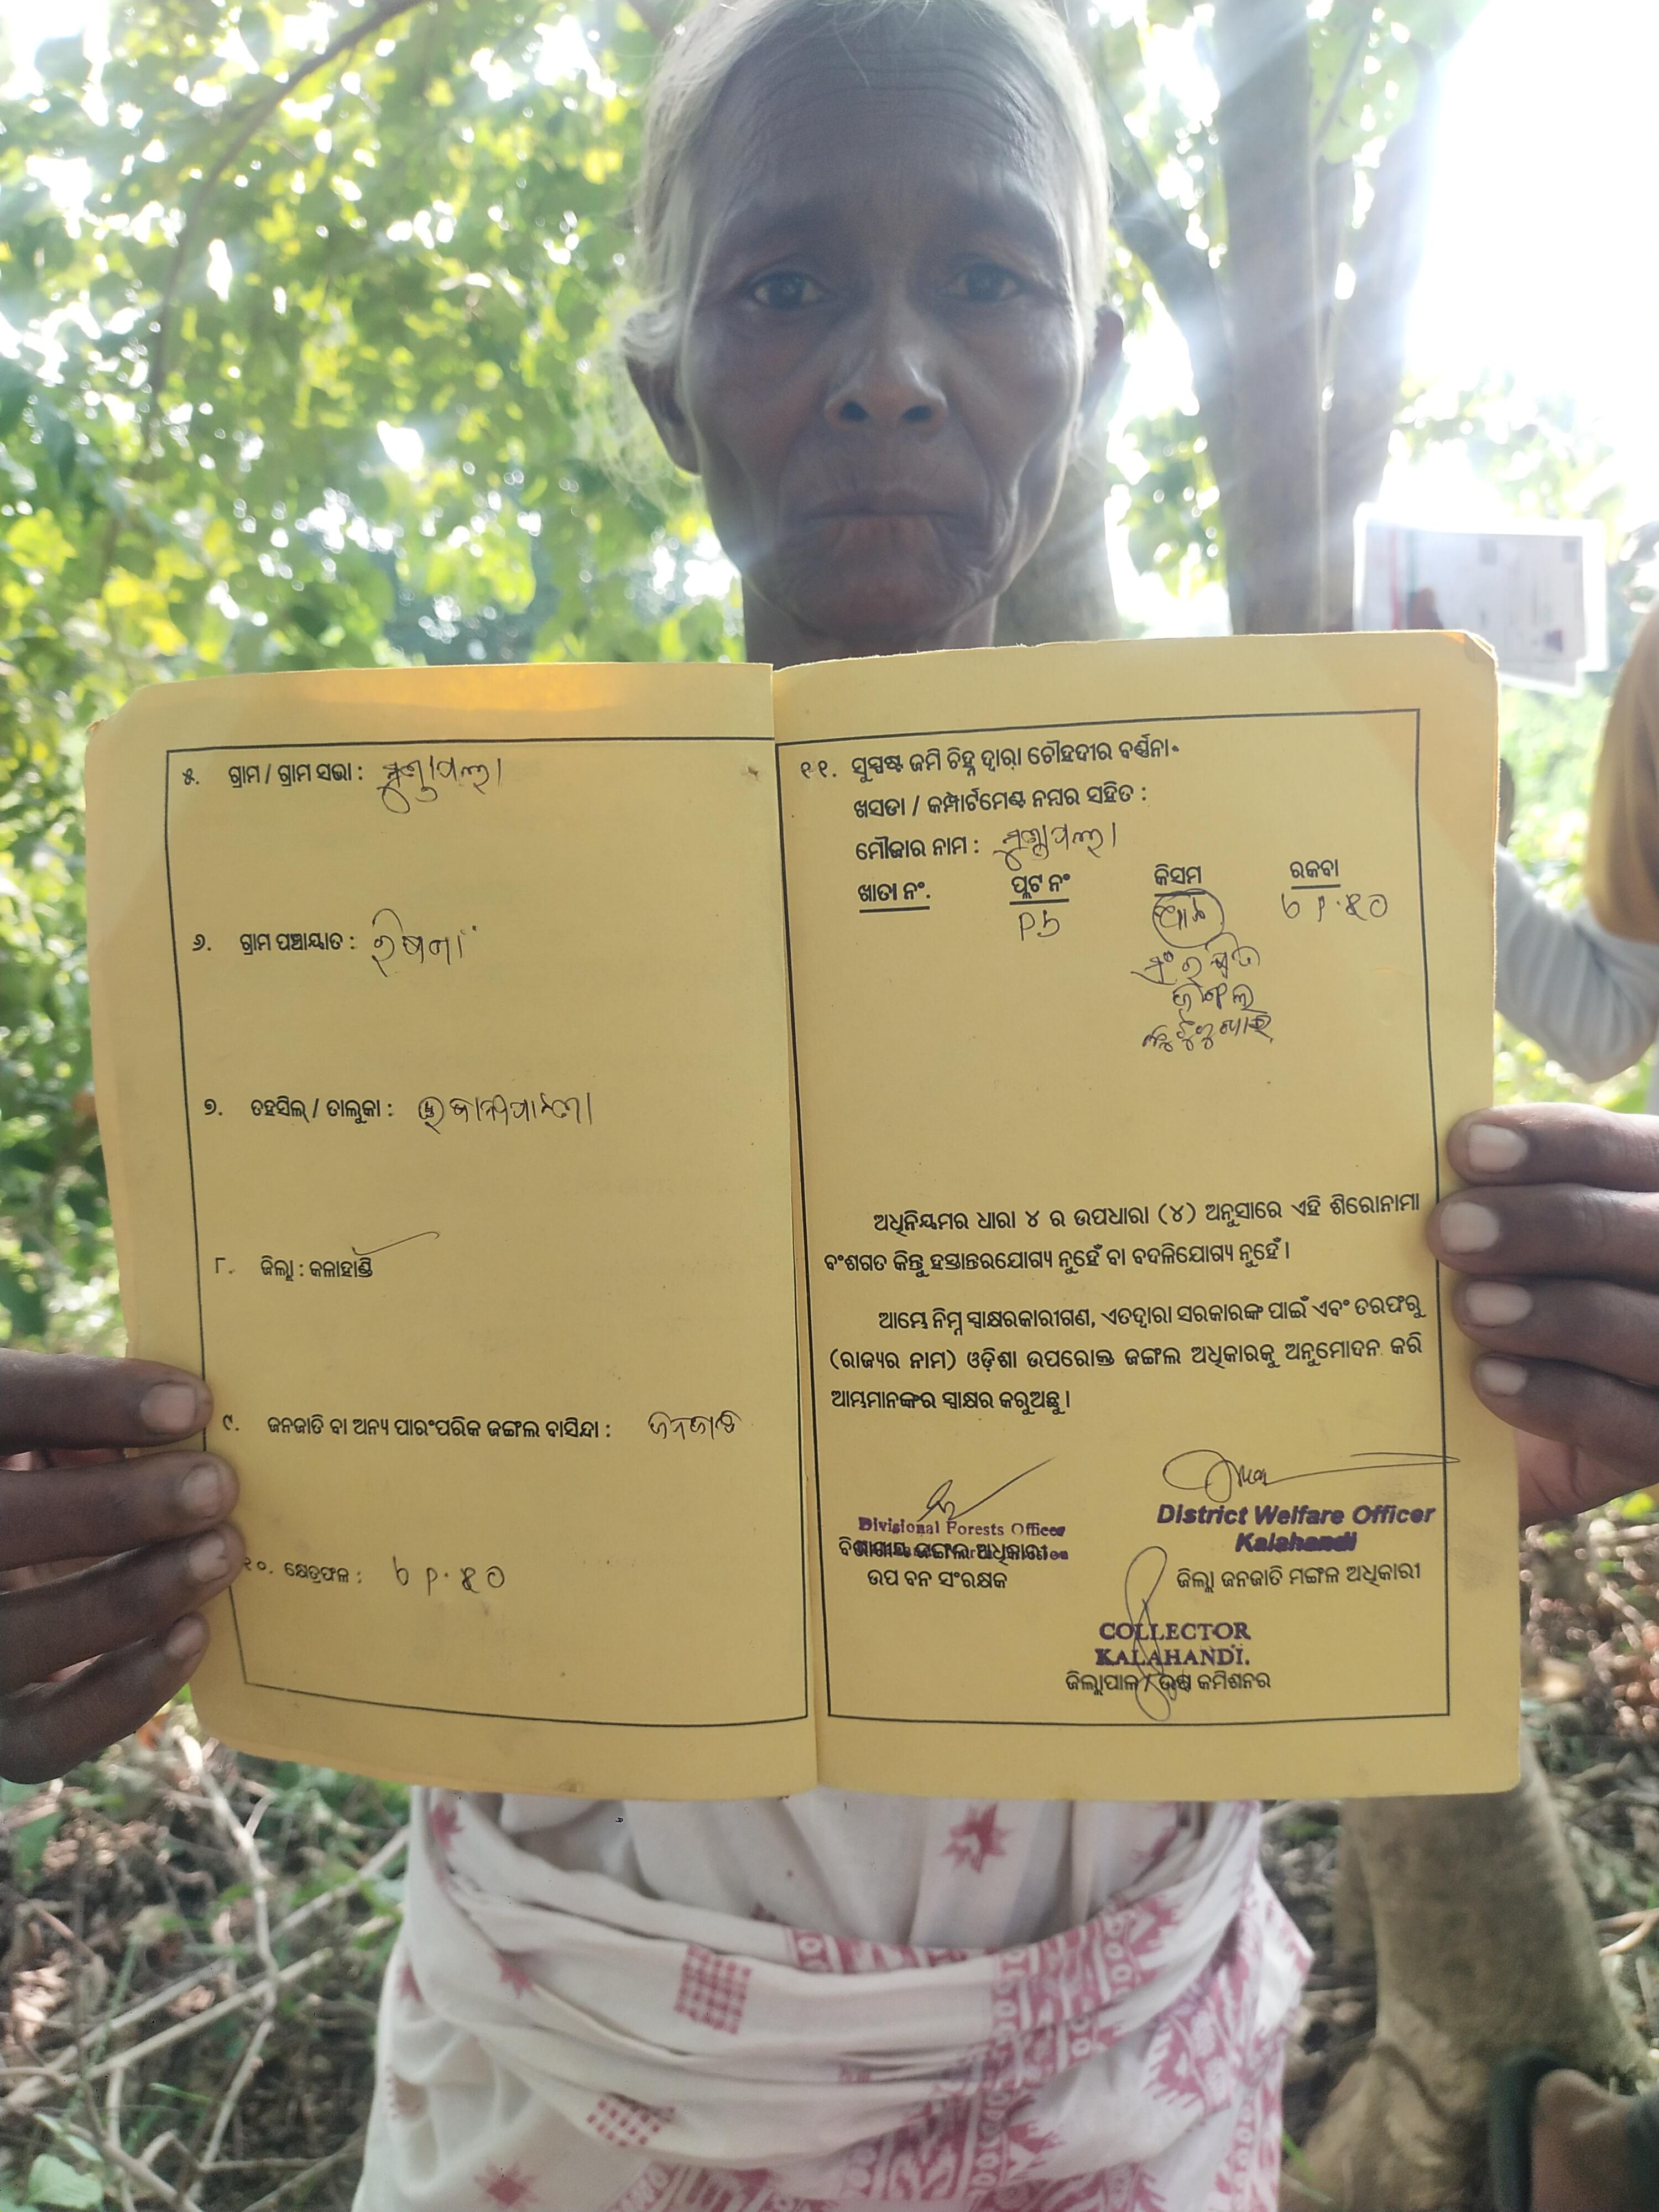 ୫. ଗ୍ରାମ / ଗ୍ରାମ ସଭା :
୬. ଗ୍ରାମ ପଞ୍ଚାୟାତ :
୭. ତହସିଲ୍ / ତାଲୁକା :
୮. ଜିଲ୍ଲା : କଳାହାଣ୍ଡି
୯. ଜନଜାତି ବା ଅନ୍ୟ ପାରଂପରିକ ଜଙ୍ଗଲ ବାସିନ୍ଦା : ଜନଜାତି
୧୦. କ୍ଷେତ୍ରଫଳ :
୧୧. ସୁସ୍ପଷ୍ଟ ଜମି ଚିହ୍ନ ଦ୍ୱାରା ଚୌହଦୀର ବର୍ଣ୍ଣନା
ଖସଡା / କମ୍ପାର୍ଟମେଣ୍ଟ ନମ୍ବର ସହିତ :
ମୌଜାର ନାମ :
ଖାତା ନଂ. ପ୍ଲଟ ନଂ କିସମ ରକବା
ଜଙ୍ଗଲ
ଅଧିନିୟମର ଧାରା ୪ ର ଉପଧାରା (୪) ଅନୁସାରେ ଏହି ଶିରୋନାମା
ବଂଶଗତ କିନ୍ତୁ ହସ୍ତାନ୍ତରଯୋଗ୍ୟ ନୁହେଁ ବା ବଦଳିଯୋଗ୍ୟ ନୁହେଁ ।
ଆମ୍ଭେ ନିମ୍ନ ସ୍ୱାକ୍ଷରକାରୀଗଣ, ଏତଦ୍ୱାରା ସରକାରଙ୍କ ପାଇଁ ଏବଂ ତରଫରୁ
(ରାଜ୍ୟର ନାମ) ଓଡ଼ିଶା ଉପରୋକ୍ତ ଜଙ୍ଗଲ ଅଧିକାରକୁ ଅନୁମୋଦନ କରି
ଆମ୍ଭମାନଙ୍କର ସ୍ୱାକ୍ଷର କରୁଅଛୁ ।
Divisional Forests Officer
ବିଭାଗୀୟ ଜଙ୍ଗଲ ଅଧିକାରୀ
ଉପ ବନ ସଂରକ୍ଷକ
District Welfare Officer
Kalahandi
ଜିଲ୍ଲା ଜନଜାତି ମଙ୍ଗଳ ଅଧିକାରୀ
COLLECTOR
KALAHANDI.
ଜିଲ୍ଲାପାଳ / ଉଷ କମିଶନର